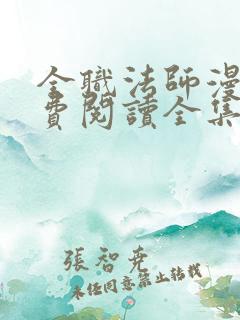 全職法師漫
費閱讀全集
張智堯
未经同意禁止转载